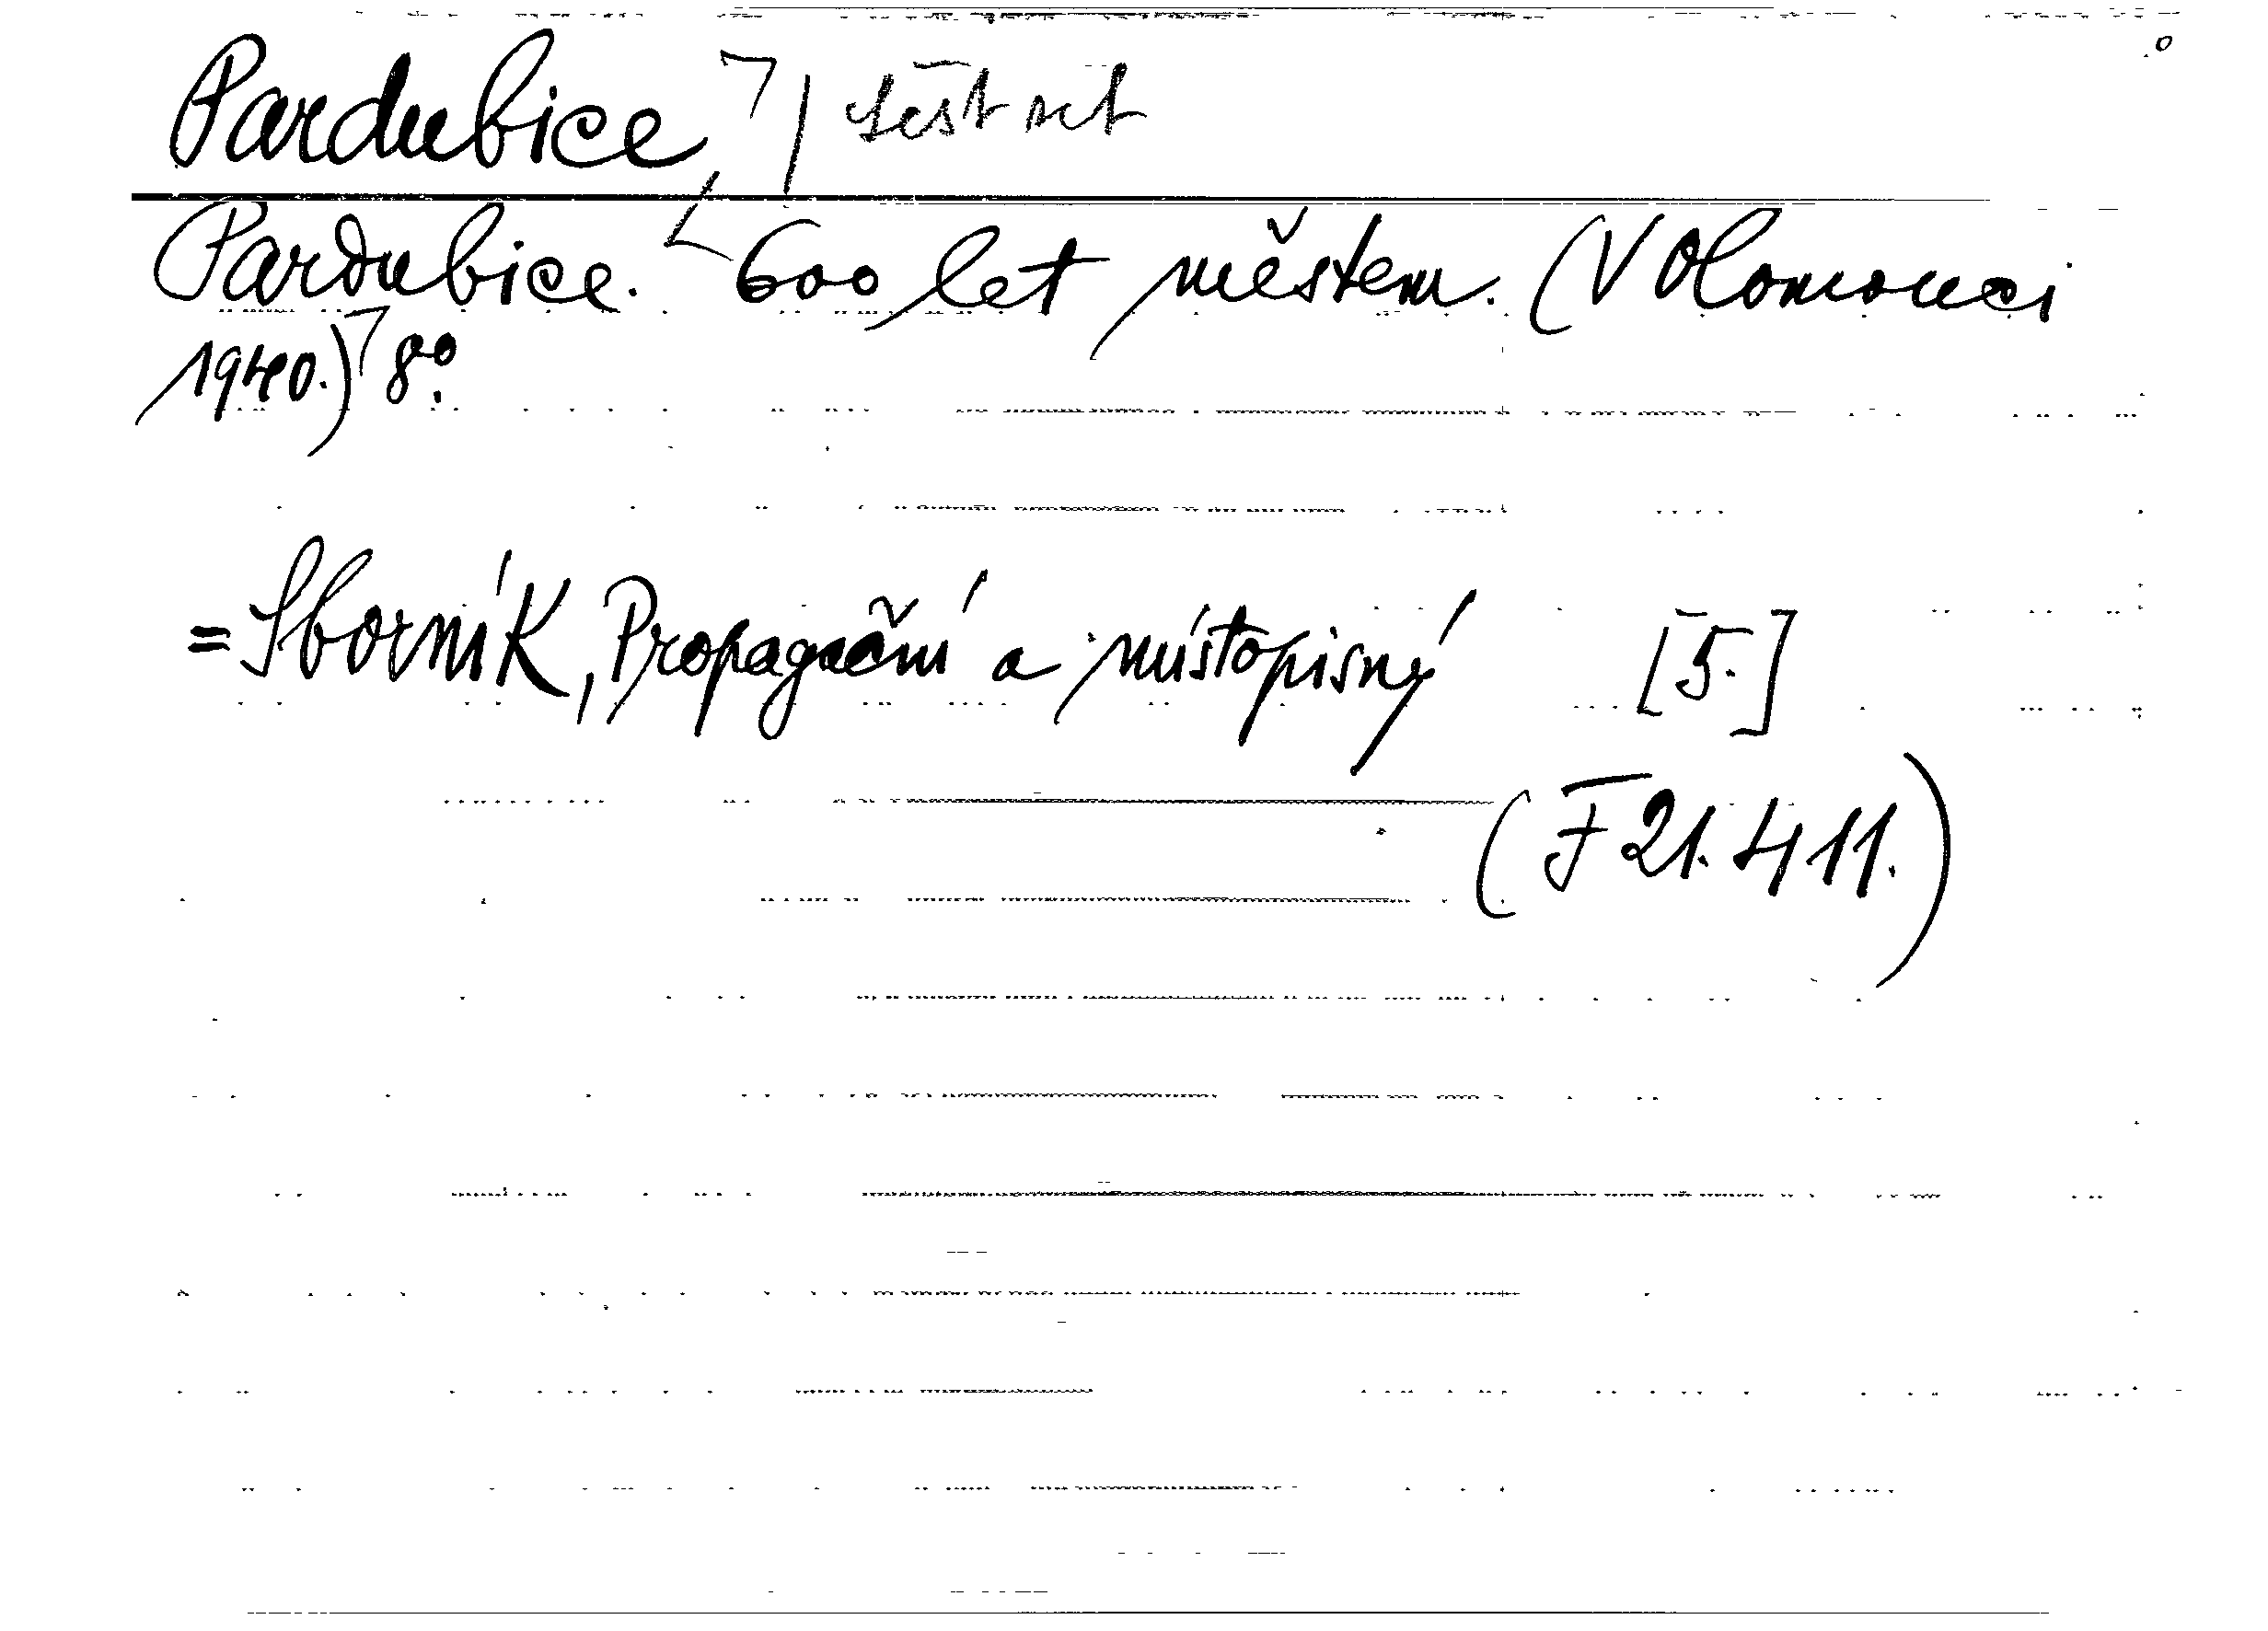 Pardubice, | šest set
Pardubice. 600 let městem. (V Olomouci
1940.) 8°.
= Sborník, Propagační a místopisný [5.]
(F 21.411.)